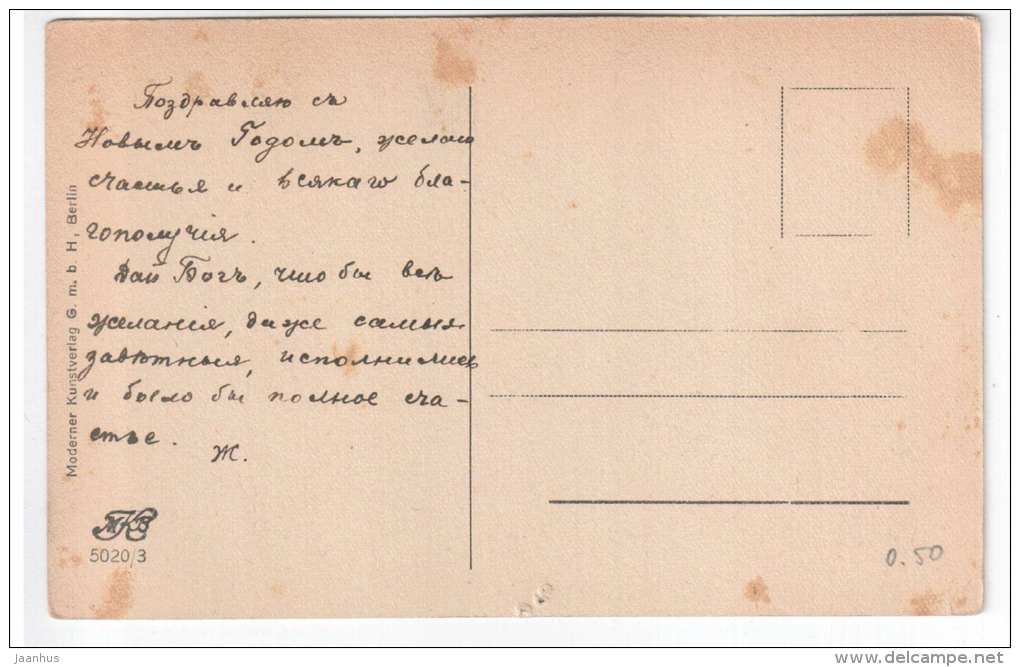 Поздравляю съ
Новымъ Годомъ, желаю
счастья и всякаго бла-
гополучія.
Дай Богъ, что бы всѣ
желанія, даже самыя
завѣтныя, исполнились
и было бы полное сча-
стье.
Ж.
Moderner Kunstverlag G. m. b. H, Berlin
MKB
5020/3
0.50
jaanhus
www.delcampe.net